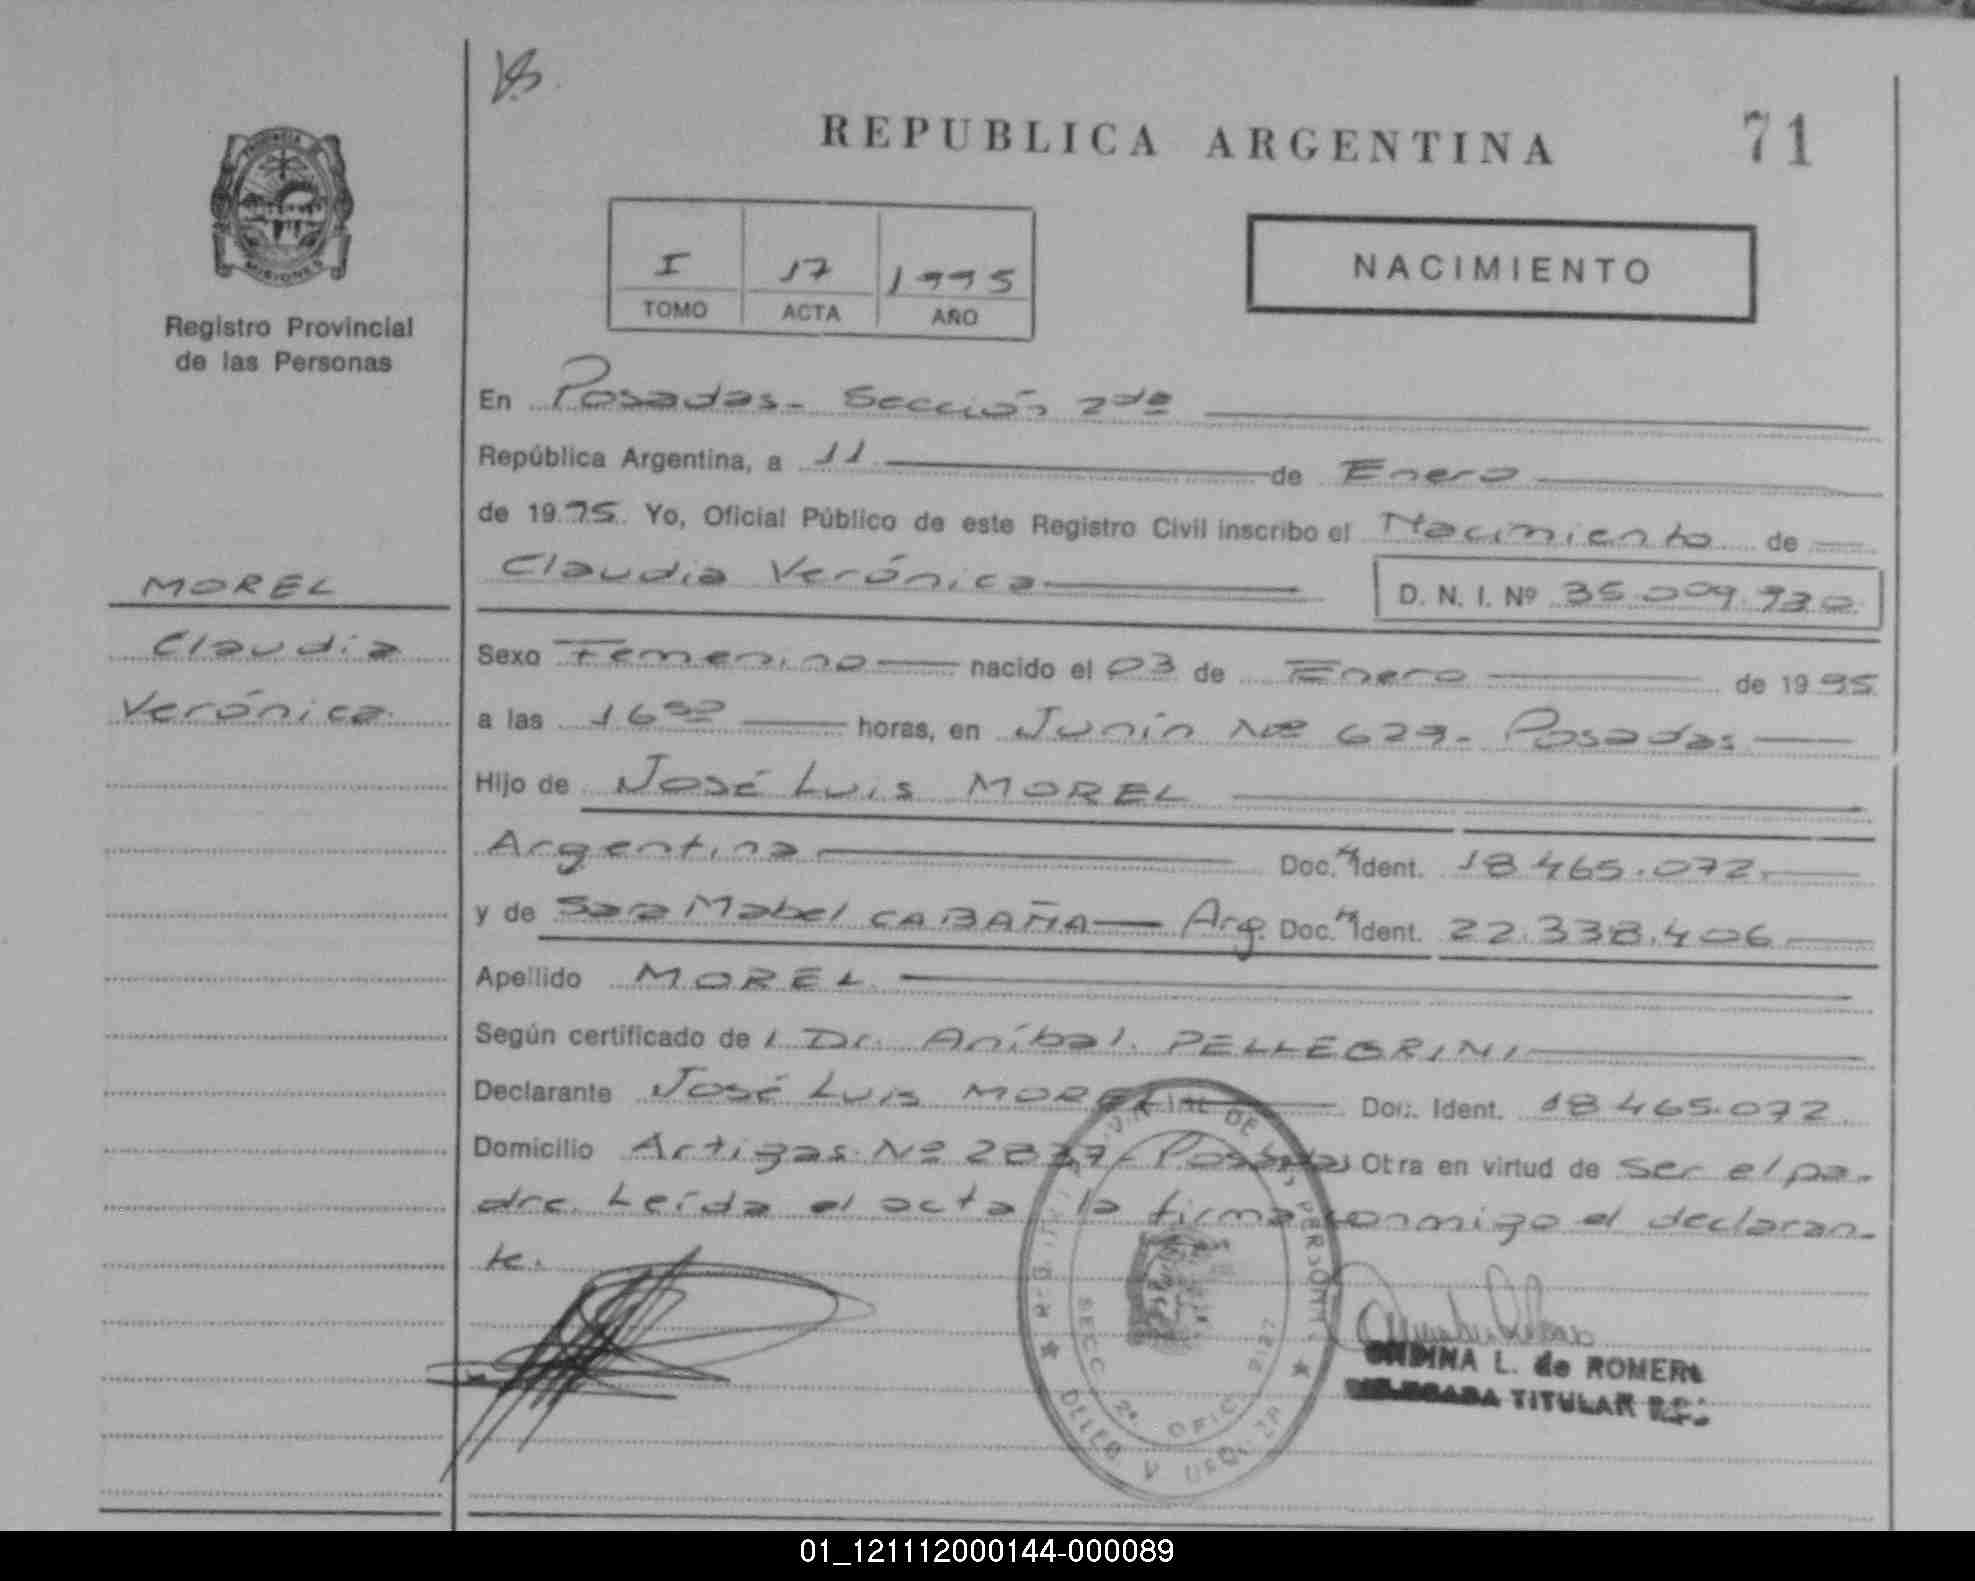 REPUBLICA ARGENTINA
71
I 17 1995
TOMO ACTA AÑO
NACIMIENTO
PROVINCIA
MISIONES
Registro Provincial
de las Personas
MOREL
Claudia
Verónica
En Posadas - Sección 2da
República Argentina, a 11 de Enero
de 1995 Yo, Oficial Público de este Registro Civil inscribo el Nacimiento de
Claudia Verónica D. N. I. Nº 35.009.930
Sexo Femenino nacido el 03 de Enero de 1995
a las 16 horas, en Junín Nº 629 - Posadas
Hijo de José Luis MOREL
Argentina Doc. Ident. 18.465.072
y de Sara Mabel CABAÑA Arg. Doc. Ident. 22.338.406
Apellido MOREL
Según certificado del Dr. Aníbal. PELLEGRINI
Declarante José Luis MOREL Doc. Ident. 18.465.072.
Domicilio Artigas Nº Posadas Otra en virtud de ser el pa-
dre. Leída el acta, la firma conmigo el declaran-
te.
SECC 2ª OFIC. 2127
ONDINA L. de ROMERO
DELEGADA TITULAR
01_121112000144-000089